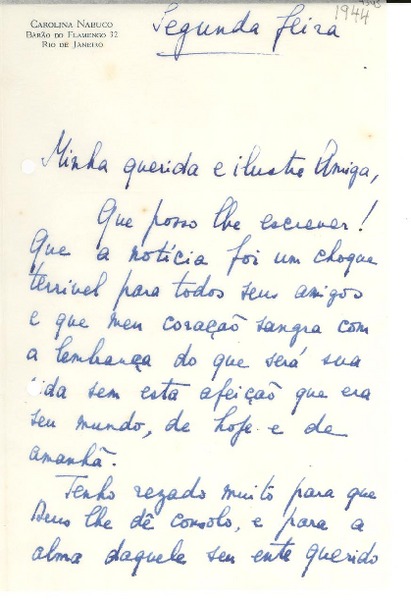 CAROLINA NABUCO
BARÃO DO FLAMENGO 32
RIO DE JANEIRO
Segunda feira
1944
Minha querida e ilustre Amiga,
Que posso lhe escrever!
Que a notícia foi um choque
terrivel para todos seus amigos
e que meu coração sangra com
a lembrança do que será sua
vida sem esta afeição que era
seu mundo, de hoje e de
amanhã.
Tenho rezado muito para que
Deus lhe dê consolo, e para a
alma daquele seu ente querido